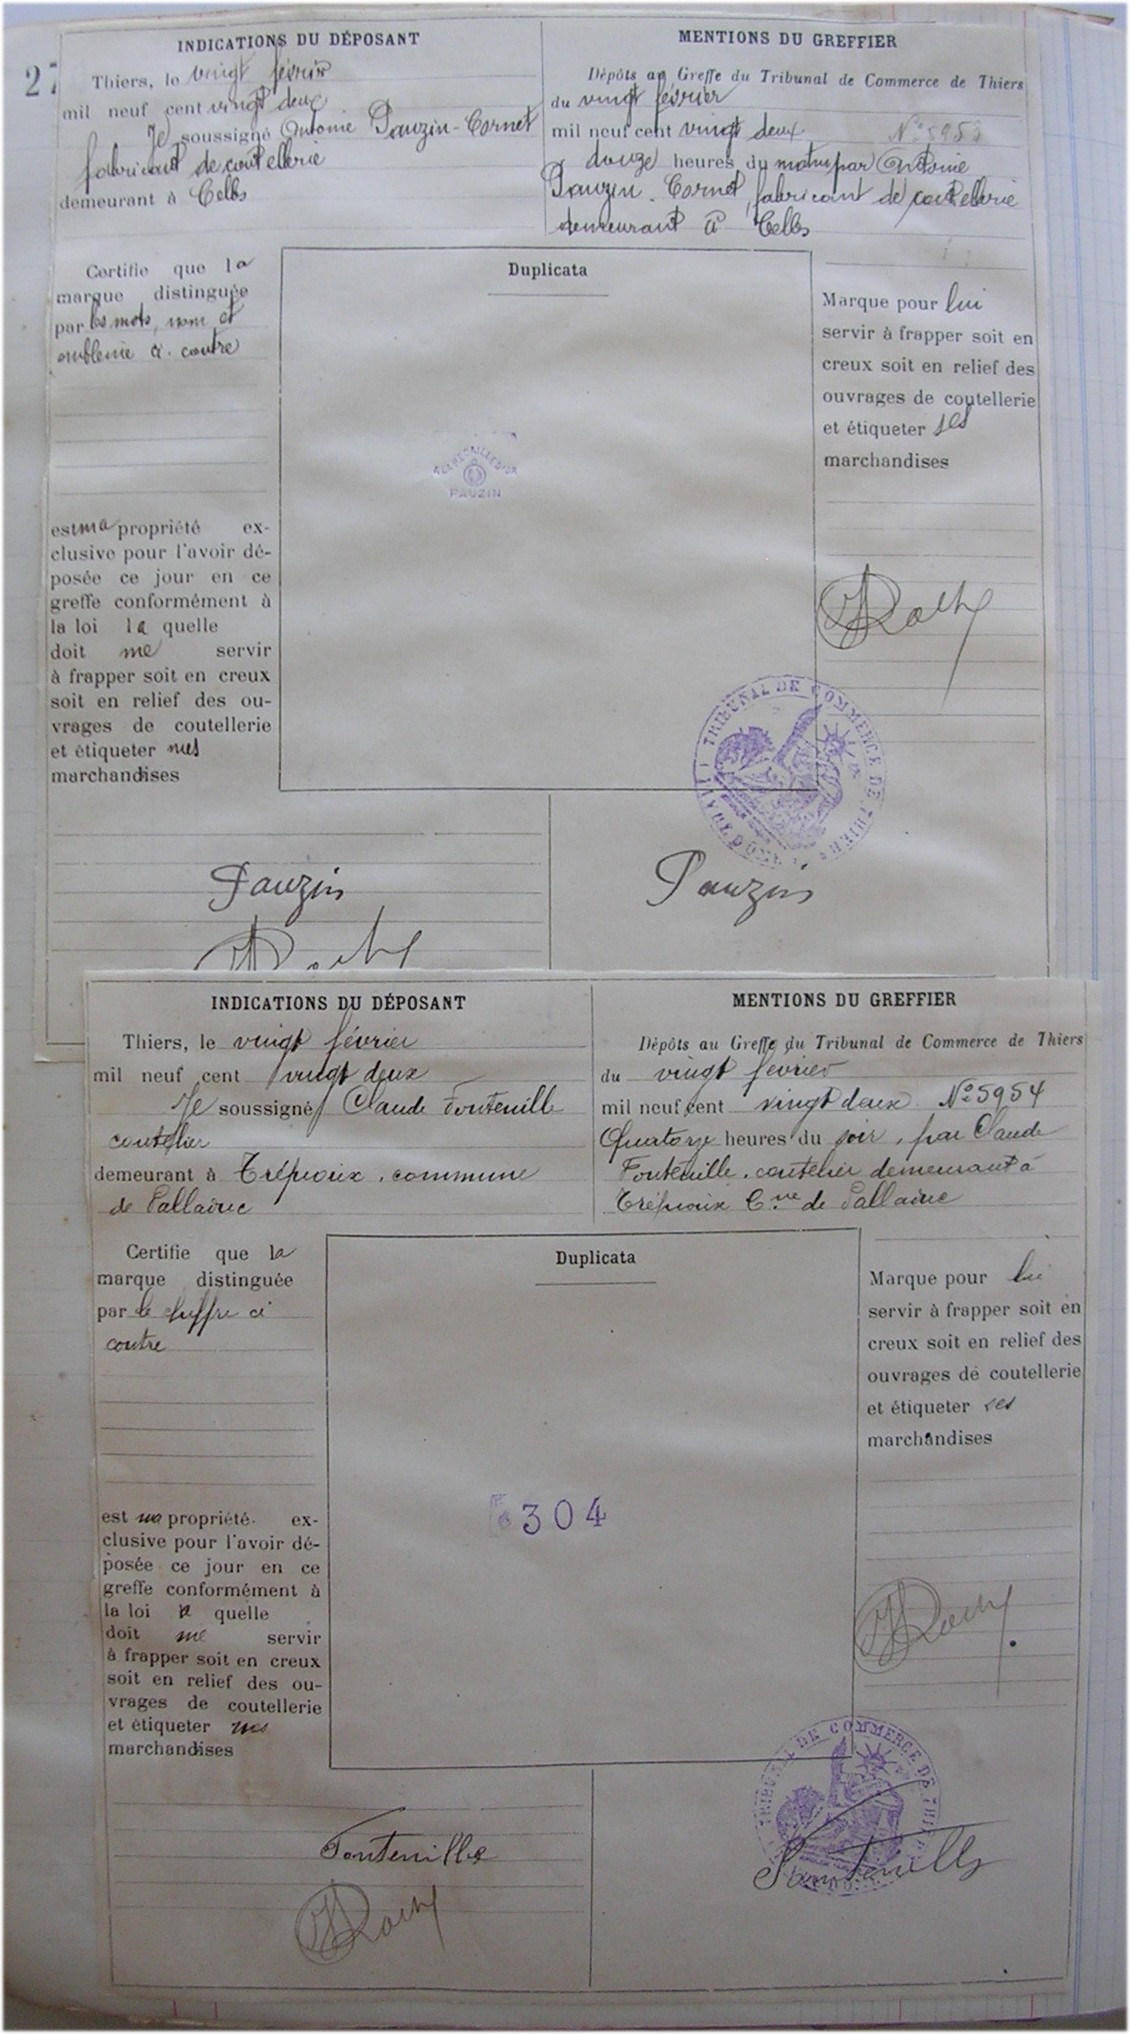 27
INDICATIONS DU DÉPOSANT
Thiers, le vingt février
mil neuf cent vingt deux
Je soussigné Antoine Pauzin-Cornet
fabricant de coutellerie
demeurant à Celles
MENTIONS DU GREFFIER
Dépôts au Greffe du Tribunal de Commerce de Thiers
du vingt février
mil neuf cent vingt deux N° 5953
douze heures du matin par Antoine
Pauzin-Cornet, fabricant de coutellerie
demeurant à Celles
Certifie que la
marque distinguée
par les mots, nom et
emblème ci-contre
est ma propriété ex-
clusive pour l'avoir dé-
posée ce jour en ce
greffe conformément à
la loi la quelle
doit me servir
à frapper soit en creux
soit en relief des ou-
vrages de coutellerie
et étiqueter mes
marchandises
Duplicata
A LA MEDAILLE D'OR
PAUZIN
Marque pour lui
servir à frapper soit en
creux soit en relief des
ouvrages de coutellerie
et étiqueter ses
marchandises
Roche
TRIBUNAL DE COMMERCE DE THIERS
Pauzin
Roche
Pauzin
INDICATIONS DU DÉPOSANT
Thiers, le vingt février
mil neuf cent vingt deux
Je soussigné Claude Fontenille
coutelier
demeurant à Trépioux, commune
de Palladuc
MENTIONS DU GREFFIER
Dépôts au Greffe du Tribunal de Commerce de Thiers
du vingt février
mil neuf cent vingt deux N° 5954
Quatorze heures du soir, par Claude
Fontenille, coutelier demeurant à
Trépioux Cne de Palladuc
Certifie que la
marque distinguée
par le chiffre ci
contre
est ma propriété ex-
clusive pour l'avoir dé-
posée ce jour en ce
greffe conformément à
la loi la quelle
doit me servir
à frapper soit en creux
soit en relief des ou-
vrages de coutellerie
et étiqueter mes
marchandises
Duplicata
304
Marque pour lui
servir à frapper soit en
creux soit en relief des
ouvrages de coutellerie
et étiqueter ses
marchandises
Roche
TRIBUNAL DE COMMERCE DE THIERS
Fontenille
Roche
Fontenille